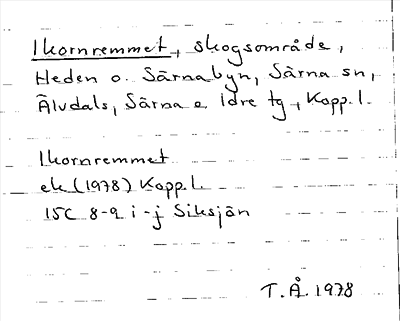 Ikornremmet, skogsområde,
Heden o. Särnabyn, Särna sn,
Älvdals, Särna o Idre tg, Kopp. l.
Ikornremmet
ek (1978) Kopp l.
15C 8-9 i-j Siksjön
T.Å. 1978